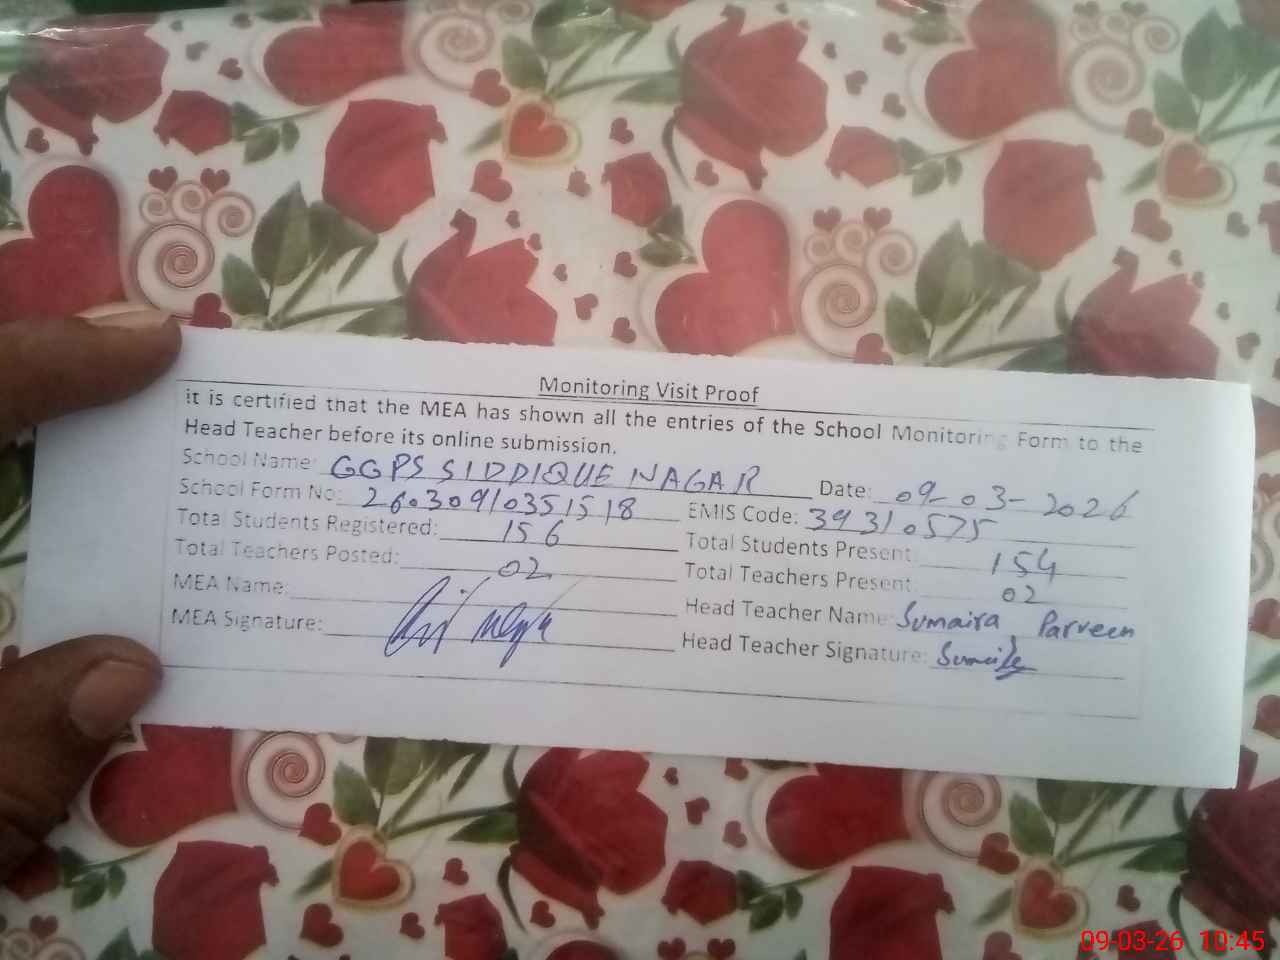 Monitoring Visit Proof
it is certified that the MEA has shown all the entries of the School Monitoring Form to the
Head Teacher before its online submission.
School Name: GGPS SIDDIQUE NAGAR Date: 09-03-2026
School Form No: 26030910351518 EMIS Code: 39310575
Total Students Registered: 156 Total Students Present: 154
Total Teachers Posted: 02 Total Teachers Present: 02
MEA Name: Head Teacher Name: Sumaira Parveen
MEA Signature: Head Teacher Signature: Sumaira
09-03-26 10:45